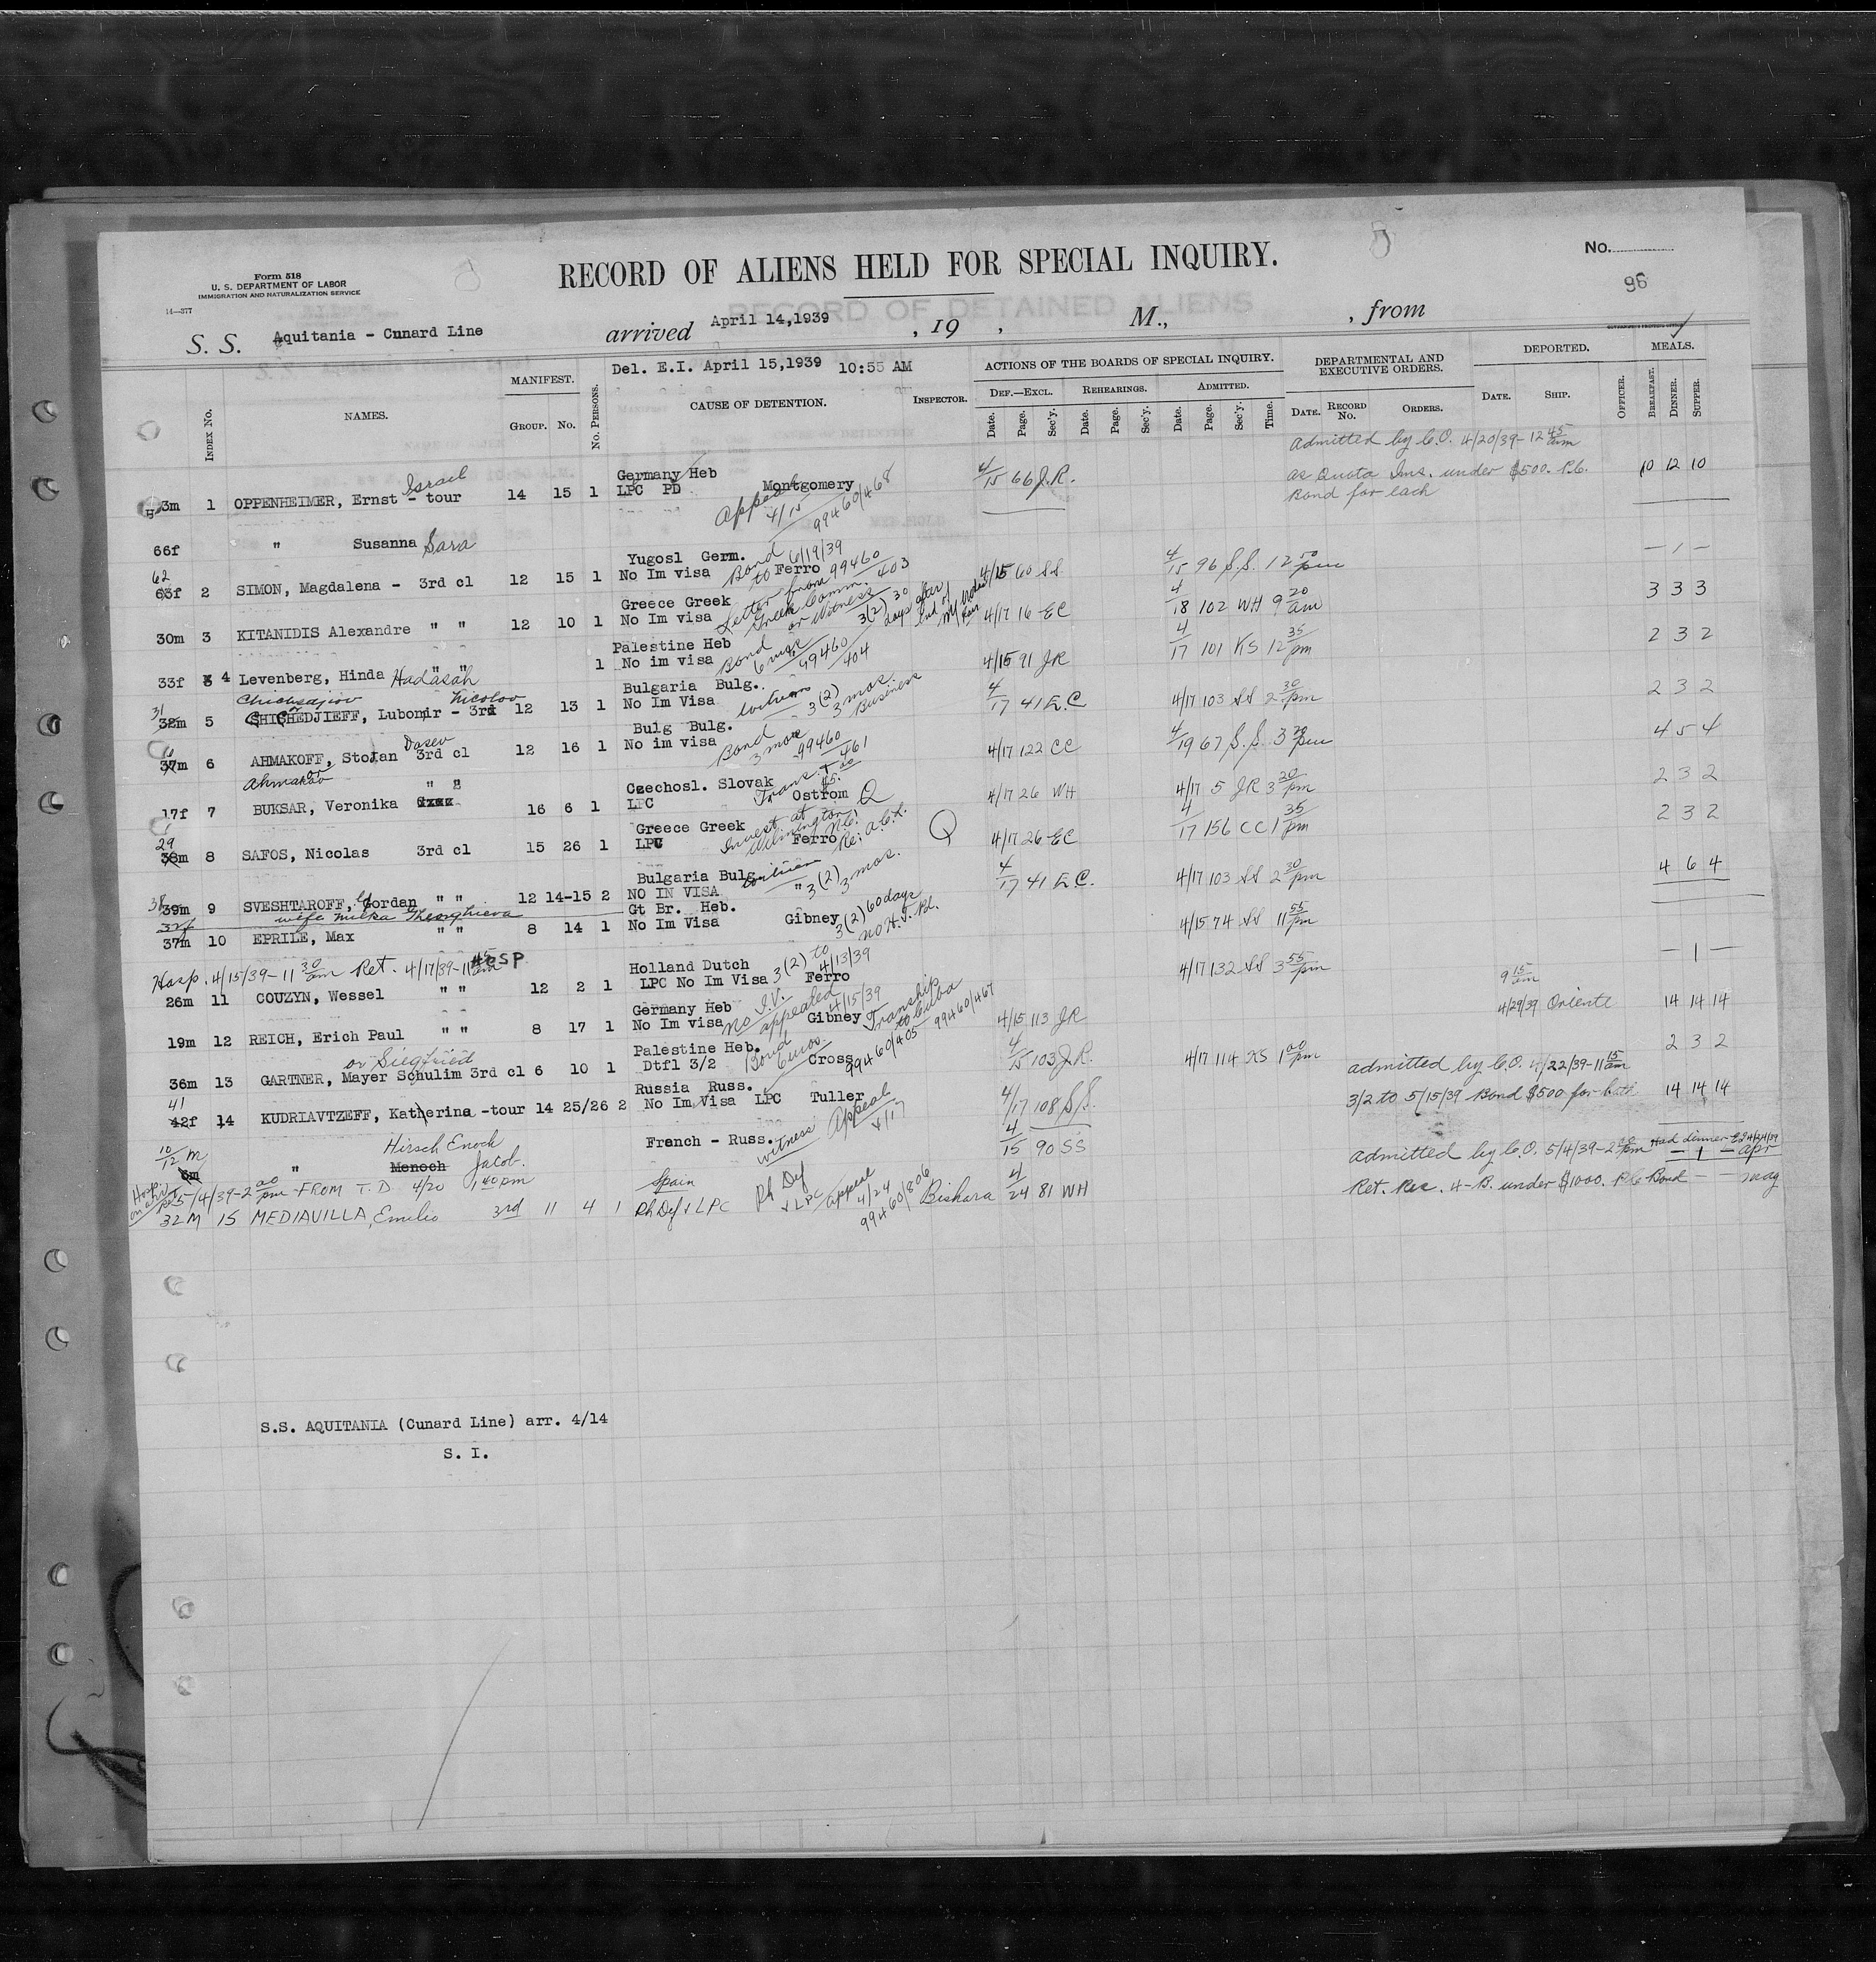 Form 518
U. S. DEPARTMENT OF LABOR
IMMIGRATION AND NATURALIZATION SERVICE
14—377
RECORD OF ALIENS HELD FOR SPECIAL INQUIRY.
No.
96
S. S. Aquitania - Cunard Line arrived April 14,1939 , 19 , M., , from
Del. E.I. April 15,1939 10:55 AM
INDEX No. NAMES. MANIFEST. GROUP. No. No. PERSONS. CAUSE OF DETENTION. INSPECTOR. ACTIONS OF THE BOARDS OF SPECIAL INQUIRY. DEPARTMENTAL AND EXECUTIVE ORDERS. DEPORTED. MEALS.
DEF.—EXCL. REHEARINGS. ADMITTED. DATE. RECORD No. ORDERS. DATE. SHIP. OFFICER. BREAKFAST. DINNER. SUPPER.
Date. Page. Sec'y. Date. Page. Sec'y. Date. Page. Sec'y. Time.
Admitted by C.O. 4/20/39-12 45
Israel Germany Heb as Quota Ims. under $500. P.C.
3m 1 OPPENHEIMER, Ernst - tour 14 15 1 LPC PD Montgomery 4/15 66 J.R. Bond for each 10 12 10
Appeal 4/15 99460/468
66f " Susanna Sara
Yugosl Germ. Bond 6/19/39
62
63f 2 SIMON, Magdalena - 3rd cl 12 15 1 No Im visa to Ferro 4/15 60 SS 4/15 96 S.S. 12 50 pm — 1 —
Greece Greek Letter from 99460 403 Greek Comm. or Witness 3(2) 30 days after end of
30m 3 KITANIDIS Alexandre " " 12 10 1 No Im visa 4/17 16 EC 4/18 102 WH 9 20 am 3 3 3
Palestine Heb Bond 6 mos 99460/404
33f 4 Levenberg, Hinda Hadasah " " 1 No im visa 4/15 91 JR 4/17 101 KS 12 35 pm 2 3 2
Nicolov Bulgaria Bulg.
31
32m 5 CHICHEDJIEFF, Lubomir - 3rd 12 13 1 No Im Visa 3(2) 3 mos. Business 4/17 41 E.C 4/17 103 SS 2 30 pm 2 3 2
Dasev Bulg Bulg.
37m 6 AHMAKOFF, Stojan 3rd cl 12 16 1 No im visa Bond 3 mos 99460/461 4/17 122 CC 4/19 67 S.S. 3 pm 4 5 4
Ahmakov
Czechosl. Slovak Trans.
17f 7 BUKSAR, Veronika " " 16 6 1 LPC Ostrom Q 4/17 26 WH 4/17 5 JR 3 20 pm 2 3 2
Greece Greek Invest at Wilmington N.C. Re: A.C.L.
29
38m 8 SAFOS, Nicolas 3rd cl 15 26 1 LPC Ferro Q 4/17 26 EC 4/17 156 CC 1 35 pm 2 3 2
Bulgaria Bulg
38
39m 9 SVESHTAROFF, Gordan " " 12 14-15 2 NO IN VISA " 3(2) 3 mos. 4/17 41 E.C. 4/17 103 SS 2 30 pm 4 6 4
wife Milka Gheorghieva
Gt Br. Heb.
37m 10 EPRILE, Max " " 8 14 1 No Im Visa Gibney 3(2) 60 days 4/15 74 SS 11 55 pm
Hosp. 4/15/39-11 30 am Ret. 4/17/39-11 45 am HOSP
Holland Dutch 3(2) to 4/13/39
26m 11 COUZYN, Wessel " " 12 2 1 LPC No Im Visa Ferro 4/17 132 SS 3 55 pm — 1 —
Germany Heb No I.V. appealed 4/15/39 Tranship to Cuba 99460/467 9 15 am
19m 12 REICH, Erich Paul " " 8 17 1 No Im visa Gibney 4/15 113 JR 4/29/39 Oriente 14 14 14
or Siegfried Palestine Heb. Bond 6 mos. 99460/405
36m 13 GARTNER, Mayer Schulim 3rd cl 6 10 1 Dtfl 3/2 Cross 4/15 103 J.R. 4/17 114 KS 1 00 pm 2 3 2
admitted by C.O. 4/22/39-11 15 am
41 Russia Russ.
42f 14 KUDRIAVTZEFF, Katherina -tour 14 25/26 2 No Im Visa LPC Tuller 4/17 108 S.S. 3/2 to 5/15/39 Bond $500 for both 14 14 14
Witness Appeal 4/17
10/12 m Hirsch Enoch French - Russ. 4/15 90 SS
6m " Menoch Jacob.
admitted by C.O. 5/4/39-2 pm Had dinner
5/4/39-2 00 pm - FROM T.D 4/20 1 40 pm Spain
32M 15 MEDIAVILLA, Emilio 3rd 11 4 1 Ph Def & LPC Ph Def & LPC appeal 4/24 99460/806 Bishara 4/24 81 WH Ret. Res. 4-B. under $1000. P.C Bond
S.S. AQUITANIA (Cunard Line) arr. 4/14
S. I.